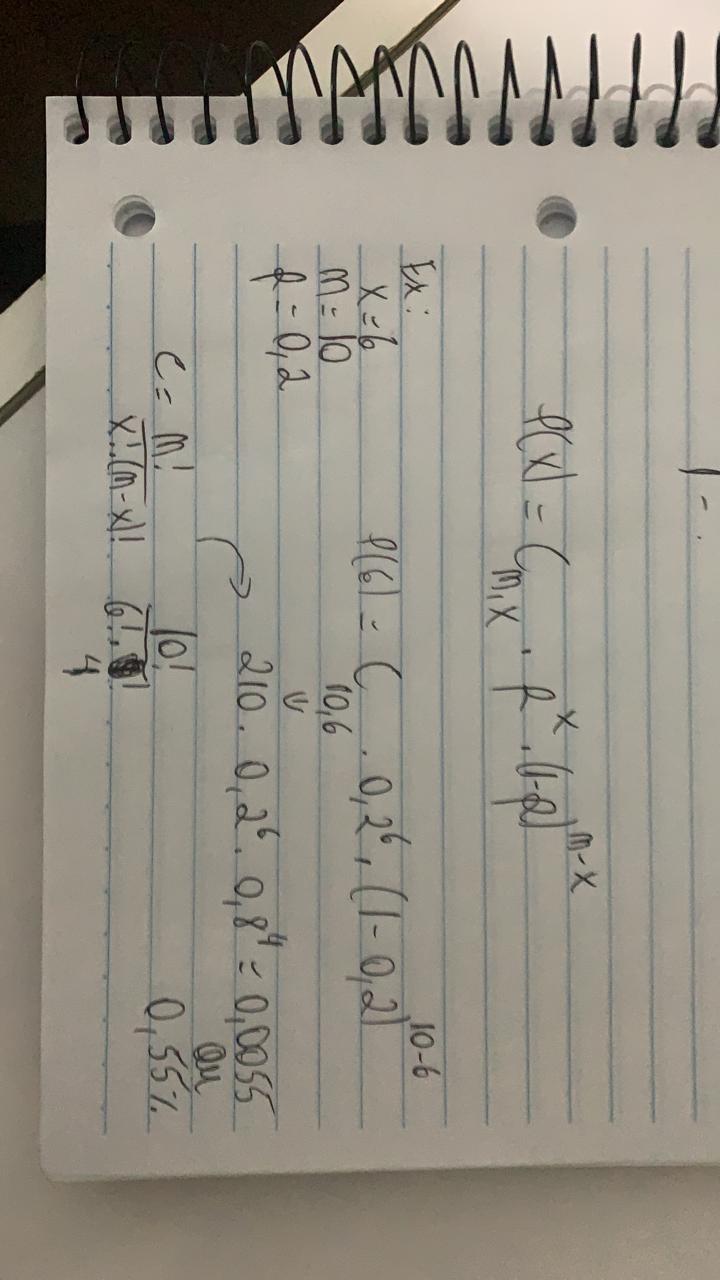 1 - .
P(X) = C_{n,X} . p^X . (1-p)^{n-X}
Ex:
X = 6
n = 10
p = 0,2
P(6) = C_{10,6} . 0,2^6 . (1 - 0,2)^{10-6}
↓
→ 210 . 0,2^6 . 0,8^4 = 0,0055
ou
0,55%
C = n!/X!.(n-X)! 10!/6!.4!